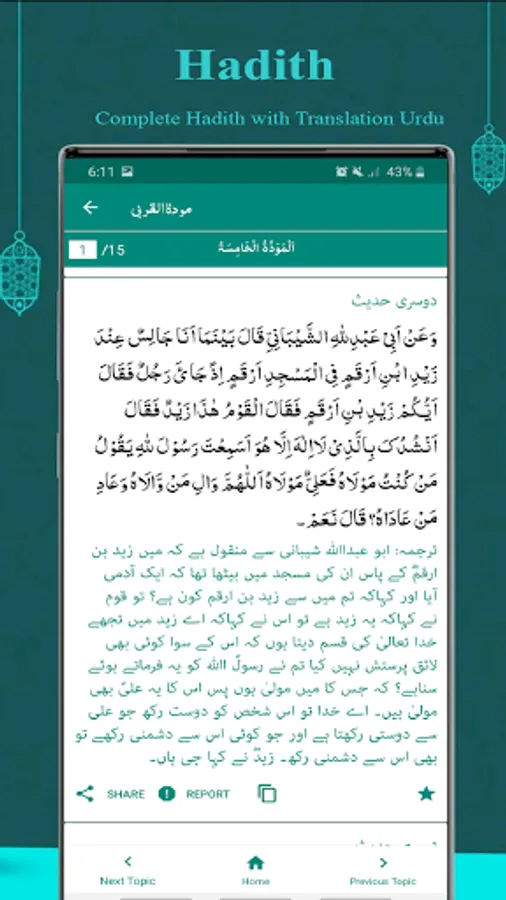 Hadith
Complete Hadith with Translation Urdu
6:11
43%
مودۃالقربی
1 /15
اَلْمَوَدَّۃُ الْخَامِسَۃُ
دوسری حدیث
وَعَنْ اَبِیْ عَبْدِاللّٰهِ الشَّیْبَانِیِّ قَالَ بَیْنَمَا اَنَا جَالِسٌ عِنْدَ
زَیْدِ ابْنِ اَرْقَمٍ فِی الْمَسْجِدِ اَرْقَمٍ اِذْ جَائَ رَجُلٌ فَقَالَ
اَیُّکُمْ زَیْدِ بْنِ اَرْقَمٍ فَقَالَ الْقَوْمُ هٰذَا زَیْدٌ فَقَالَ
اَنْشُدُکَ بِالَّذِیْ لَا اِلٰهَ اِلَّا هُوَ اَسَمِعْتَ رَسُوْلَ للهِ یَقُوْلُ
مَنْ کُنْتُ مَوْلَاهُ فَعَلِیٌّ مَوْلَاهُ اَللّٰهُمَّ وَالِ مَنْ وَّالَاهُ وَعَادِ
مَنْ عَادَاهُ؟ قَالَ نَعَمْ۔
ترجمہ: ابو عبداﷲ شیبانی سے منقول ہے کہ میں زید بن
ارقمؓ کے پاس ان کی مسجد میں بیٹھا تھا کہ ایک آدمی
آیا اور کہاکہ تم میں سے زید بن ارقم کون ہے؟ تو قوم
نے کہاکہ یہ زید ہے تو اس نے کہاکہ اے زید میں تجھے
خدا تعالیٰ کی قسم دیتا ہوں کہ اس کے سوا کوئی بھی
لائق پرستش نہیں کیا تم نے رسولؐ اﷲ کو یہ فرماتے ہوئے
سناہے؟ کہ جس کا میں مولیٰ ہوں پس اس کا یہ علیؑ بھی
مولیٰ ہیں۔ اے خدا تو اس شخص کو دوست رکھ جو علی
سے دوستی رکھتا ہے اور جو کوئی اس سے دشمنی رکھے تو
بھی اس سے دشمنی رکھ۔ زیدؓ نے کہا جی ہاں۔
SHARE REPORT
Next Topic Home Previous Topic